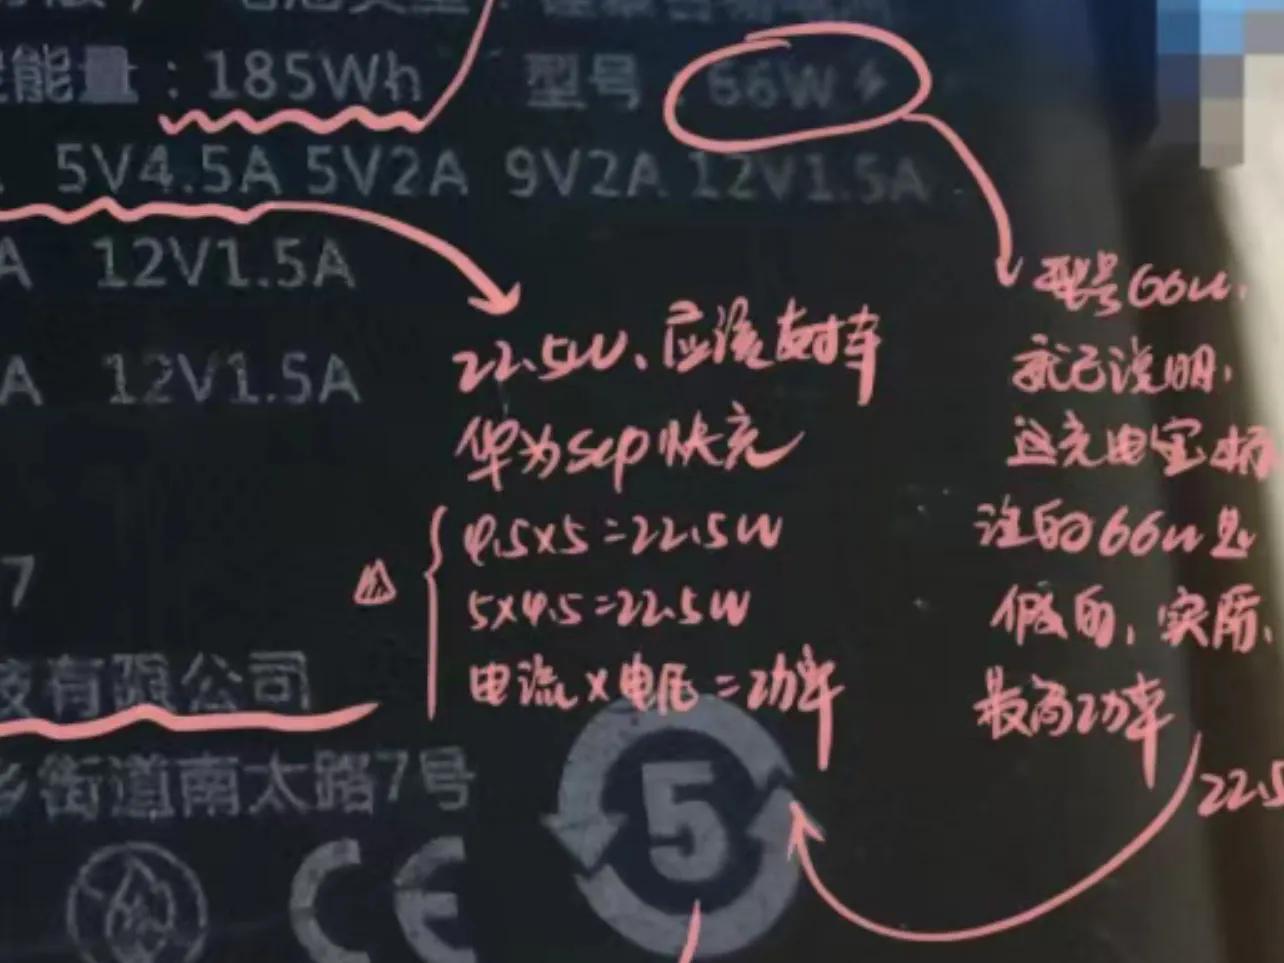 能量：185Wh 型号：66W
5V4.5A 5V2A 9V2A 12V1.5A
A 12V1.5A
A 12V1.5A
型号66W，
就已说明，
这充电宝标
注的66W是
假的，实际
最高功率
22.5
22.5W、应该支持
华为scp快充
4.5×5=22.5W
5×4.5=22.5W
电流×电压=功率
7
技有限公司
乡街道南太路7号
CE
5